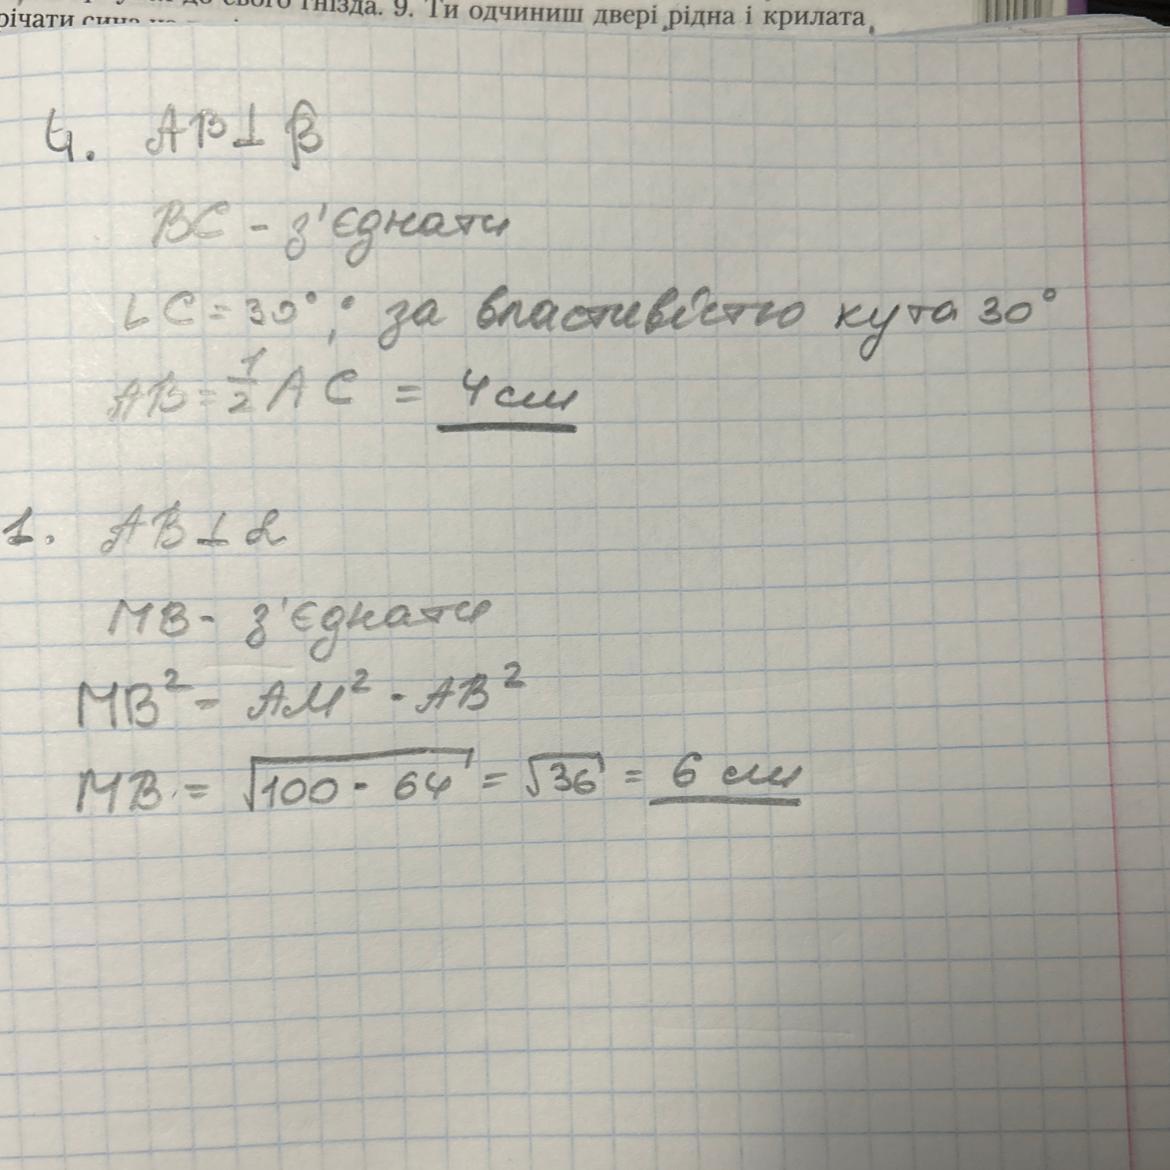 до свого гнізда. 9. Ти одчиниш двері, рідна і крилата,
річати сина
4. AB⊥β
BC - з'єднати
∠C = 30°; за властивістю кута 30°
AB = 1/2 AC = 4 см
1. AB⊥α
MB - з'єднати
MB² = AM² - AB²
MB = √100 - 64 = √36 = 6 см